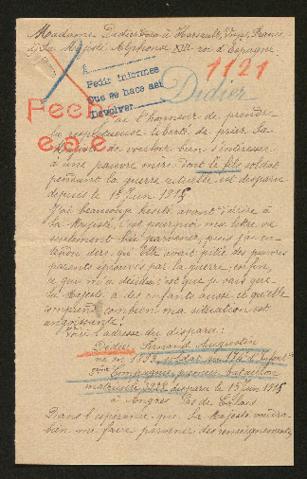 Madame Didier à Harsault, Vosges, France
à Sa Majesté Alphonse XIII roi d'Espagne,
Pedir informes
que se hace sei
Devolver
1121
Didier
l'honneur de prendre
la respectueuse liberté de prier Sa
Majesté de vouloir bien s'intéresser
à une pauvre mère dont le fils soldat
pendant la guerre actuelle est disparu
depuis le 1915
J'ai beaucoup hésité avant d'écrire à
Sa Majesté, c'est pourquoi ma lettre ne
seulement lui parvenir, mais j'ai
dire qu'Elle avait pitié des pauvres
parents éprouvés par la guerre, enfin,
ce qui m'a décidée c'est que je sais que
Sa Majesté a des enfants aussi et qu'elle
comprend combien ma situation est
angoissante!
Voici l'adresse du disparu:
Didier Fernand Augustin
né en soldat au d'Infanterie
Compagnie, premier bataillon
matricule disparu le juin 1915
à Angres Pas de Calais
Dans l'espérance que Sa Majesté voudra
bien me faire parvenir des renseignements